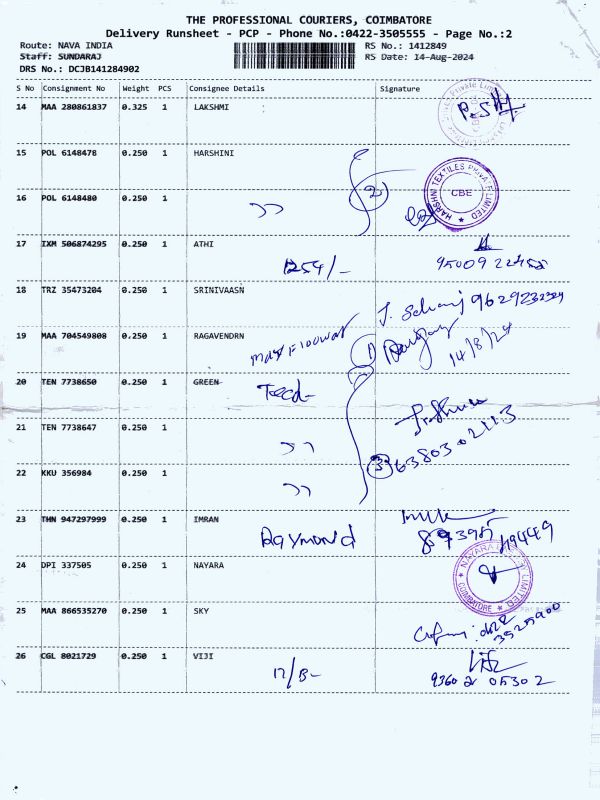 THE PROFESSIONAL COURIERS, COIMBATORE
Delivery Runsheet - PCP - Phone No.:0422-3505555 - Page No.:2
Route: NAVA INDIA RS No.: 1412849
Staff: SUNDARAJ RS Date: 14-Aug-2024
DRS No.: DCJB141284902
S No Consignment No Weight PCS Consignee Details Signature
14 MAA 280861837 0.325 1 LAKSHMI :
15 POL 6148478 0.250 1 HARSHINI
HARSHNI TEXTILES PRIVATE LIMITED
CBE
16 POL 6148480 0.250 1
2
17 IXM 506874295 0.250 1 ATHI
1254/-
18 TRZ 35473204 0.250 1 SRINIVAASN
19 MAA 704549808 0.250 1 RAGAVENDRN
1
14/8/24
20 TEN 7738650 0.250 1 GREEN
21 TEN 7738647 0.250 1
3 63803 02113
22 KKU 356984 0.250 1
23 THN 947297999 0.250 1 IMRAN
Raymond
24 DPI 337505 0.250 1 NAYARA
COIMBATORE
25 MAA 866535270 0.250 1 SKY
26 CGL 8021729 0.250 1 VIJI